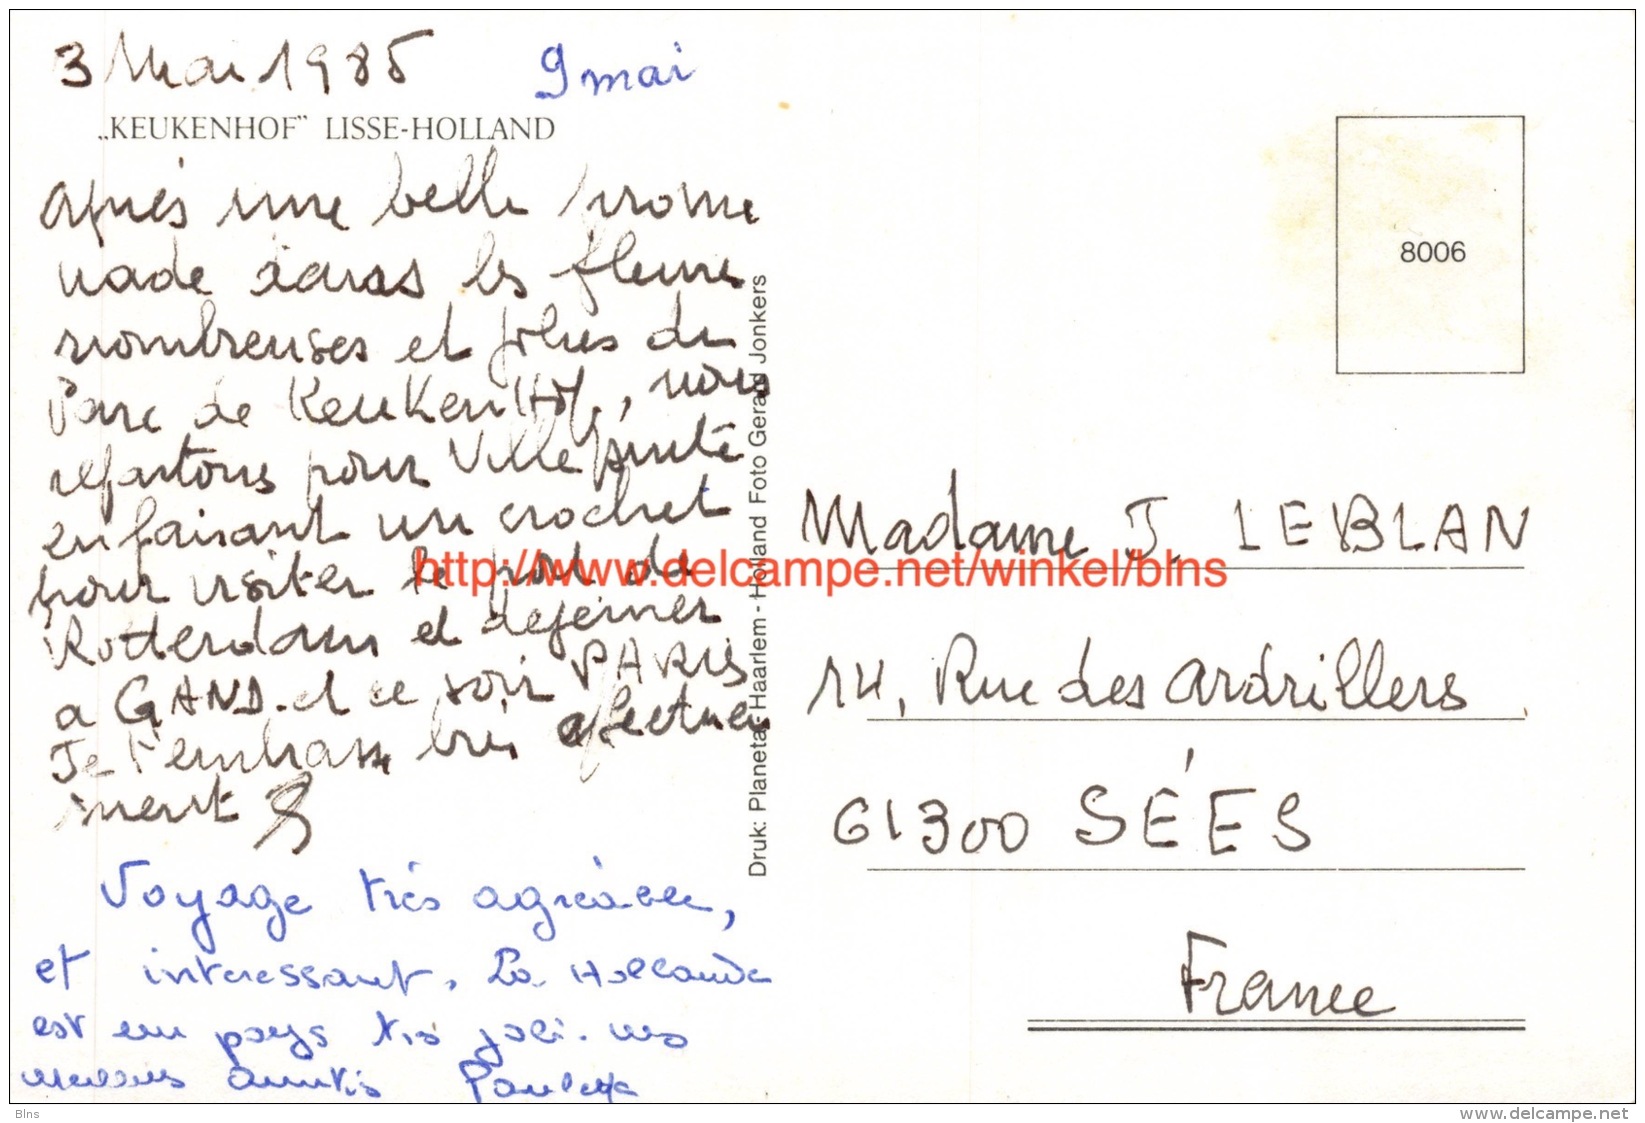 3 Mai 1985
9 mai
„KEUKENHOF” LISSE-HOLLAND
après une belle prome
nade dans les fleurs
nombreuses et jolies du
Parc de KeuKenHof, nous
repartons pour Villepinte
en faisant un crochet
pour visiter le port de
Rotterdam et dejeuner
a GAND. et ce soir PARIS
Je t'embrasse très affectueu
sement
Voyage très agréable,
et intéressant. La Hollande
est un pays très joli. nos
meilleures amitiés Paulette
Druk: Planeta - Haarlem - Holland Foto Gerard Jonkers
8006
Madame J. LEBLAN
14, Rue des Ardrillers
61300 SÉES
France
http://www.delcampe.net/winkel/blns
Blns
www.delcampe.net